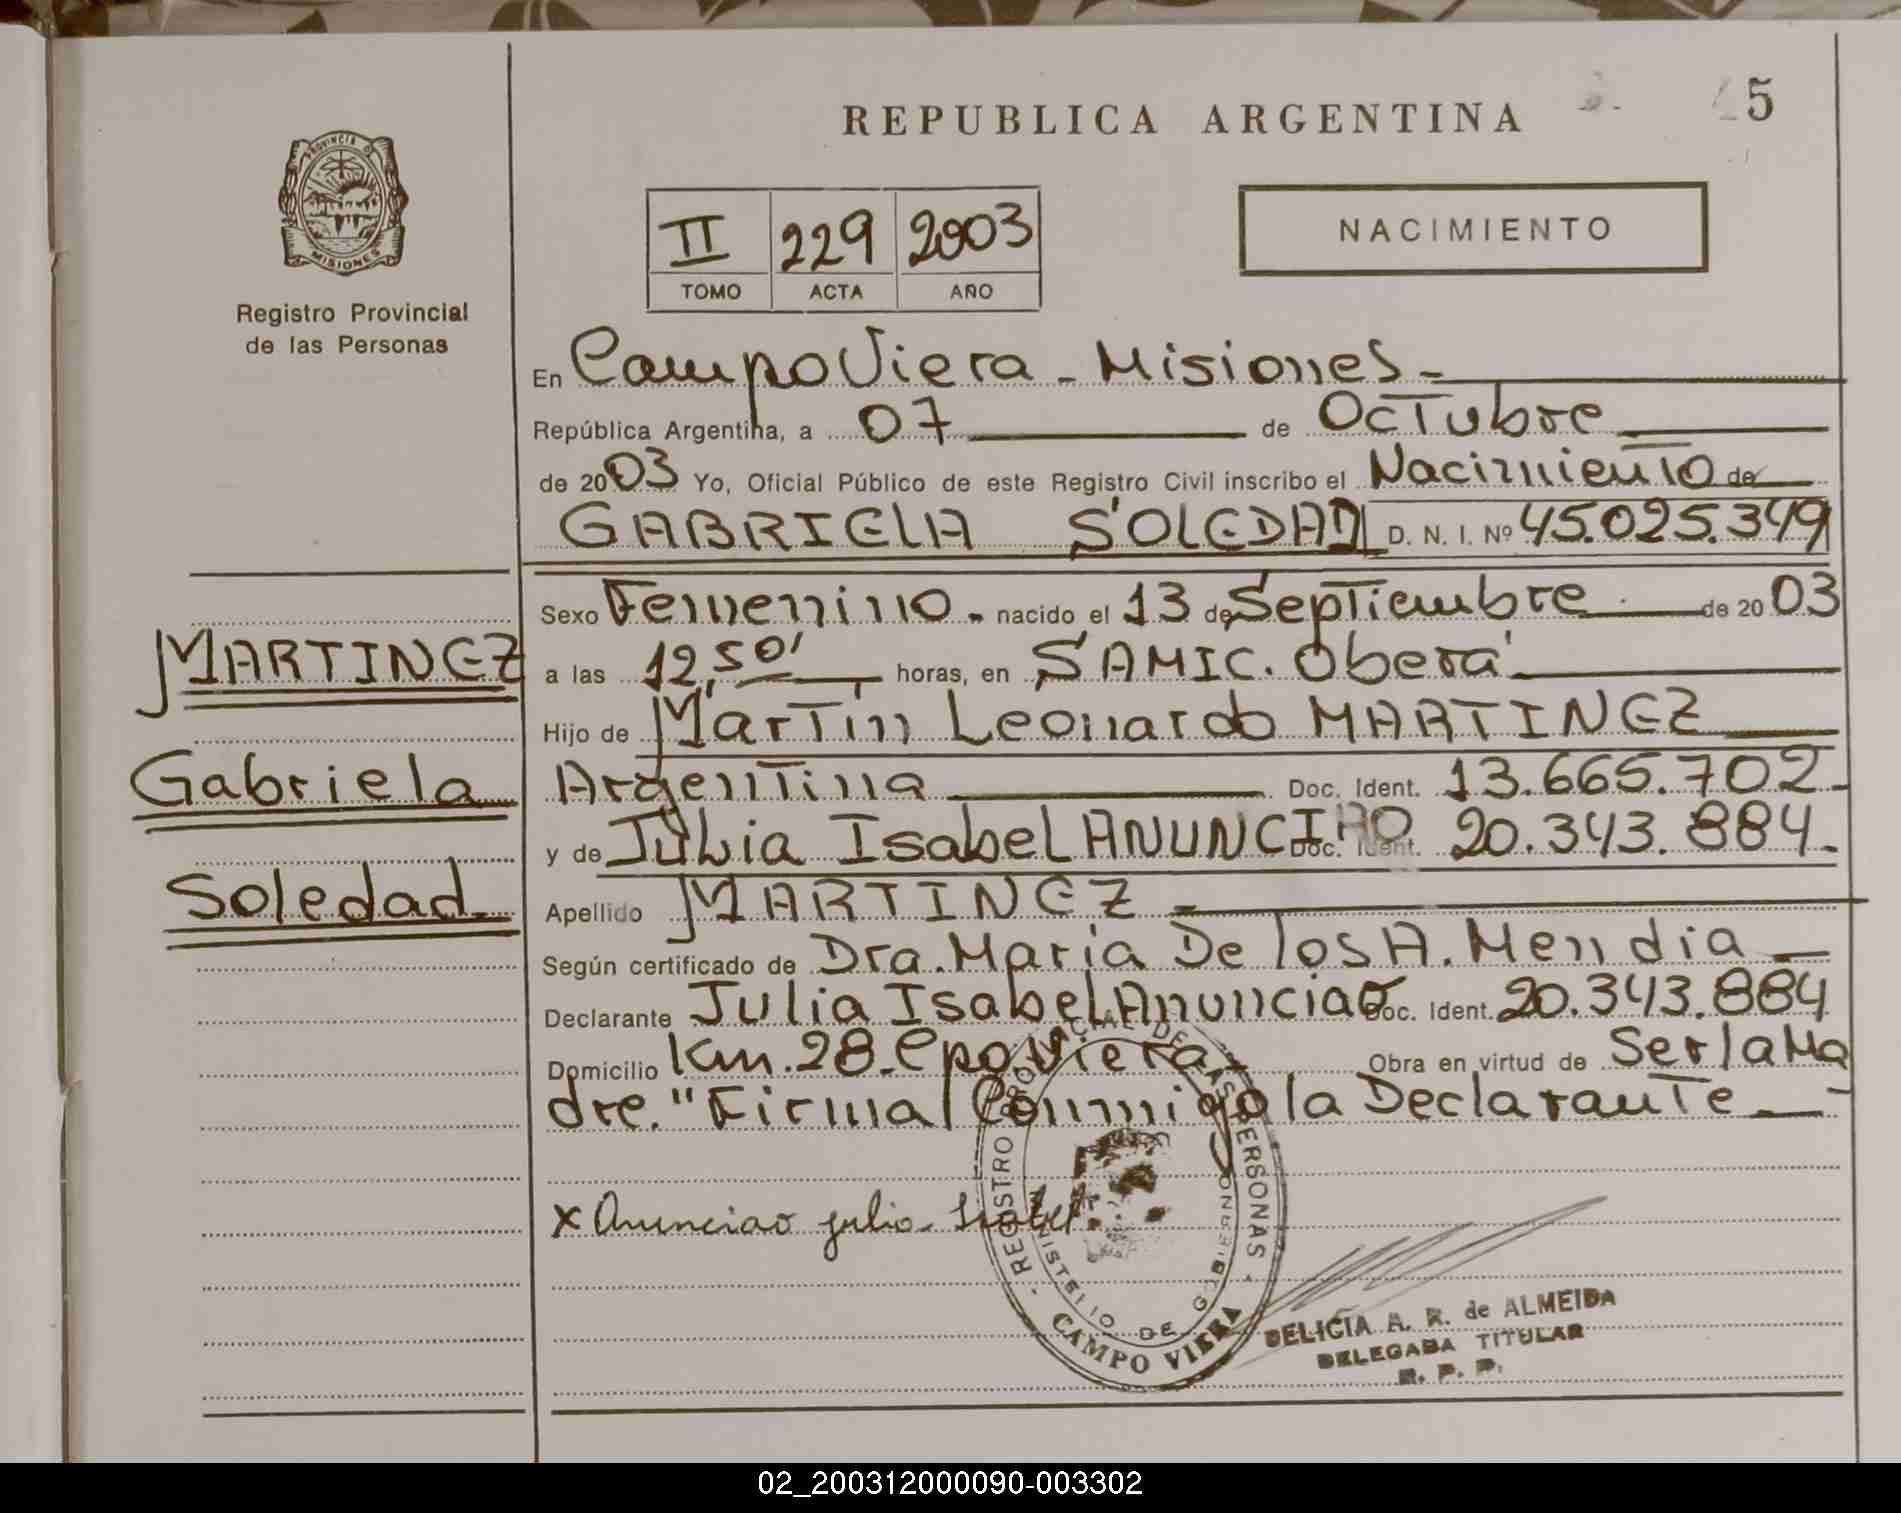 REPUBLICA ARGENTINA
5
PROVINCIA D
MISIONES
Registro Provincial
de las Personas
II 229 2003
TOMO ACTA AÑO
NACIMIENTO
En Campo Viera - Misiones -
República Argentina, a 07 de Octubre
de 2003 Yo, Oficial Público de este Registro Civil inscribo el Nacimiento de
GABRIELA SOLEDAD D. N. I. Nº 45.025.349
Sexo Femenino - nacido el 13 de Septiembre de 2003
a las 12,50' horas, en SAMIC. Oberá
Hijo de Martín Leonardo MARTINEZ
Argentina Doc. Ident. 13.665.702-
y de Julia Isabel ANUNCIAO Doc. Ident. 20.343.884-
Apellido MARTINEZ -
Según certificado de Dra. Maria De los A. Mendia
Declarante Julia Isabel Anunciao Doc. Ident. 20.343.884
Domicilio Km. 28 - Cpo. Viera - Obra en virtud de Ser la Ma
dre." Firma Conmigo la Declarante -
MARTINEZ
Gabriela
Soledad
x Anunciao julia Isabel
REGISTRO PROVINCIAL DE LAS PERSONAS
MINISTERIO DE GOBIERNO
CAMPO VIERA
DELICIA A. R. de ALMEIDA
DELEGADA TITULAR
R. P. P.
02_200312000090-003302